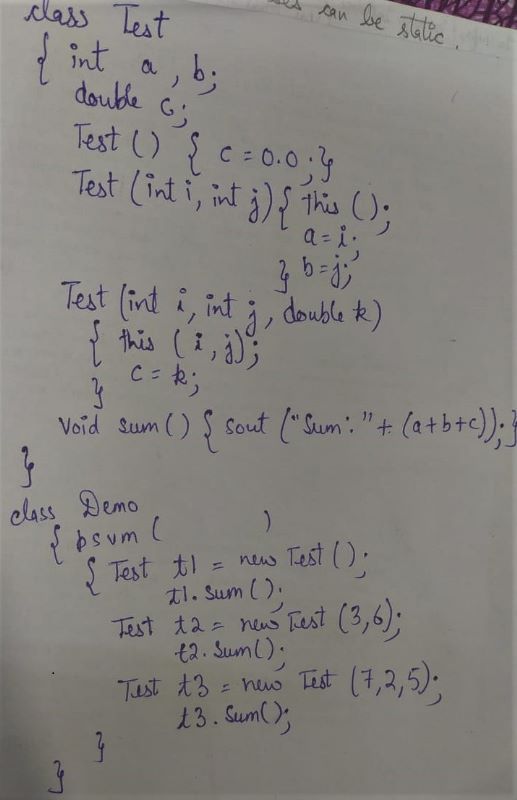 can be static.
class Test
{ int a, b;
double c;
Test () { c = 0.0;}
Test (int i, int j) { this ();
a = i;
} b = j;
Test (int i, int j, double k)
{ this (i, j);
c = k;
}
void sum() { sout ("Sum:" + (a+b+c));}
}
class Demo
{ psvm ( )
{ Test t1 = new Test ();
t1. Sum ();
Test t2 = new Test (3,6);
t2. Sum();
Test t3 = new Test (7,2,5);
t3. Sum();
}
}